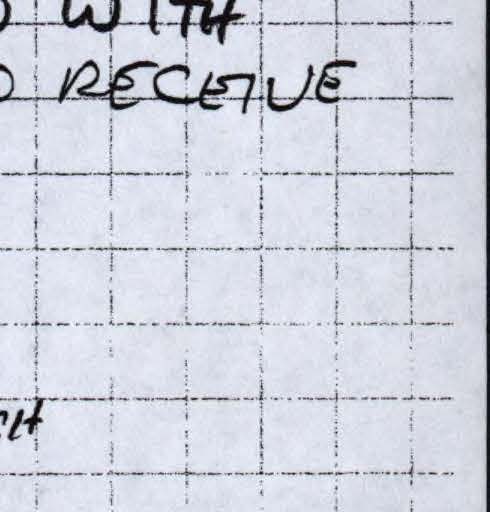 WITH
RECEIVE